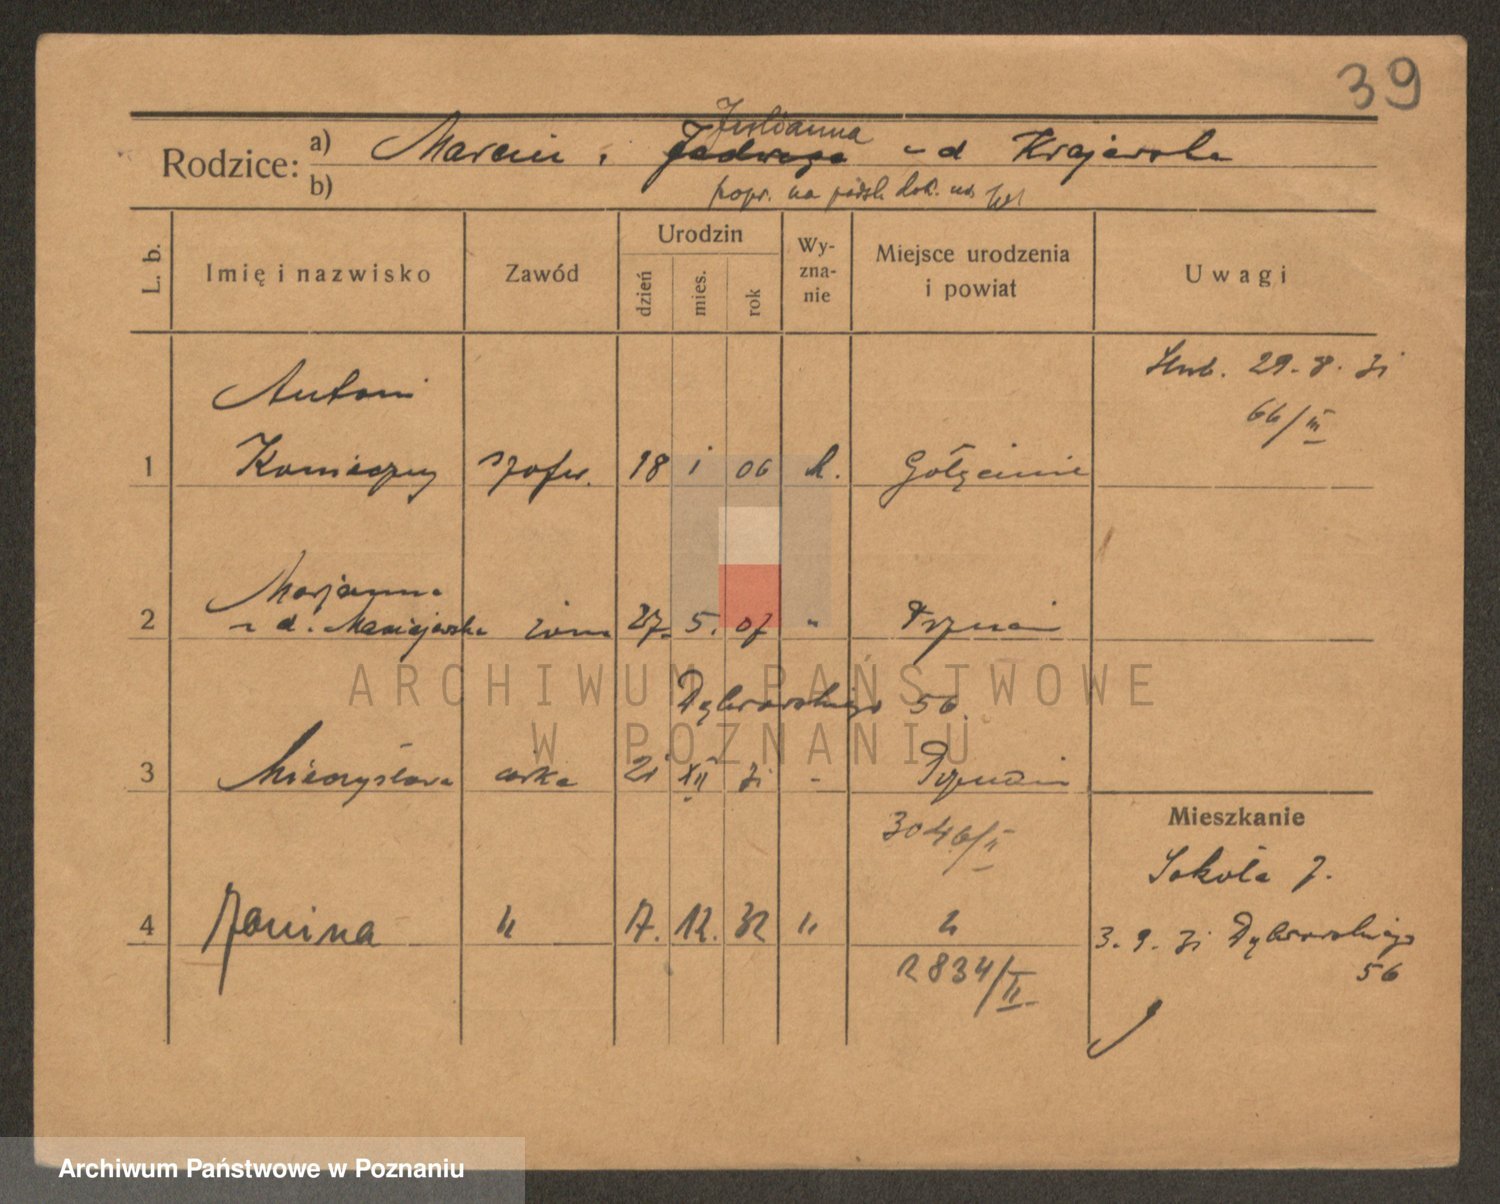 39
Rodzice:
a) Marcin i Jadwiga Julianna u d Krajewska
b) popr. na podst. dok. ur.
L. b.
Imię i nazwisko
Zawód
Urodzin
dzień
mies.
rok
Wy-
zna-
nie
Miejsce urodzenia
i powiat
Uwagi
Antoni
1 Konieczny szofer. 18 i 06 k. Gołęcinie
29. 8. 31
66/III
Marjanna
2 u d. Maciejewska żona 27. 5. 07 " Poznań
Dąbrowskiego 56
3 Mieczysława córka 21 XII 31 " Poznań
3046/II
Mieszkanie
Sokoła 7.
4 Janina " 17. 12. 32 " "
3. 9. 31 Dąbrowskiego
56
2834/II
ARCHIWUM PAŃSTWOWE
W POZNANIU
Archiwum Państwowe w Poznaniu